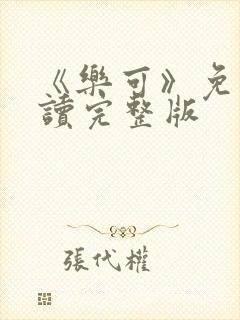 《樂可》免
讀完整版
張代權